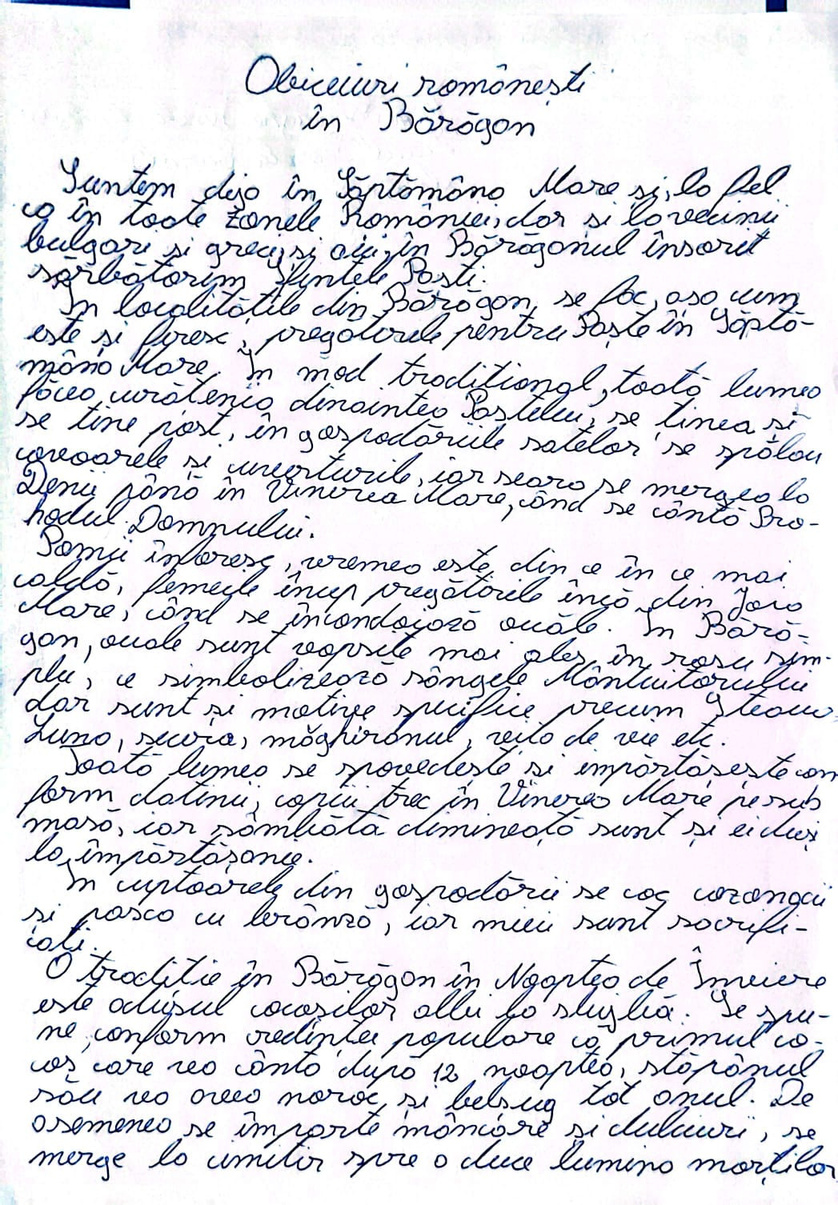 Obiceiuri românești
în Bărăgan
Suntem deja în Săptămâna Mare și, la fel
ca în toate zonele României, dar și la vecinii
bulgari și greci, și aici, în Bărăganul însorit
sărbătorim Sfintele Paști.
În localitățile din Bărăgan, se fac, așa cum
este și firesc, pregătirile pentru Paște în Săptă-
mâna Mare. În mod tradițional, toată lumea
făcea curățenia dinaintea Paștelui, se ținea și
se ține post, în gospodăriile satelor se spălau
covoarele și cuverturile, iar seara se mergea la
Denii până în Vinerea Mare, când se cântă Pro-
hodul Domnului.
Pomii înfloresc, vremea este din ce în ce mai
caldă, femeile încep pregătirile încă din Joia
Mare, când se încondeiază ouăle. În Bără-
gan, ouăle sunt vopsite mai ales în roșu sim-
plu, ce simbolizează sângele Mântuitorului
dar sunt și motive specifice precum Steaua,
Luna, securea, măghiranul, vița de vie etc.
Toată lumea se spovedește și împărtășește con
form datinii, copiii trec în Vinerea Mare pe sub
masă, iar sâmbătă dimineață sunt și ei duși
la împărtășanie.
În cuptoarele din gospodării se coc cozonacii
și pasca cu brânză, iar mieii sunt sacrifi-
cați.
O tradiție în Bărăgan în Noaptea de Înviere
este adusul cocoșilor albi la slujbă. Se spu-
ne, conform credinței populare că primul co-
coș care va cânta după 12 noaptea, stăpânul
său va avea noroc și belșug tot anul. De
asemenea se împarte mâncare și dulciuri, se
merge la cimitir spre a duce lumina morților